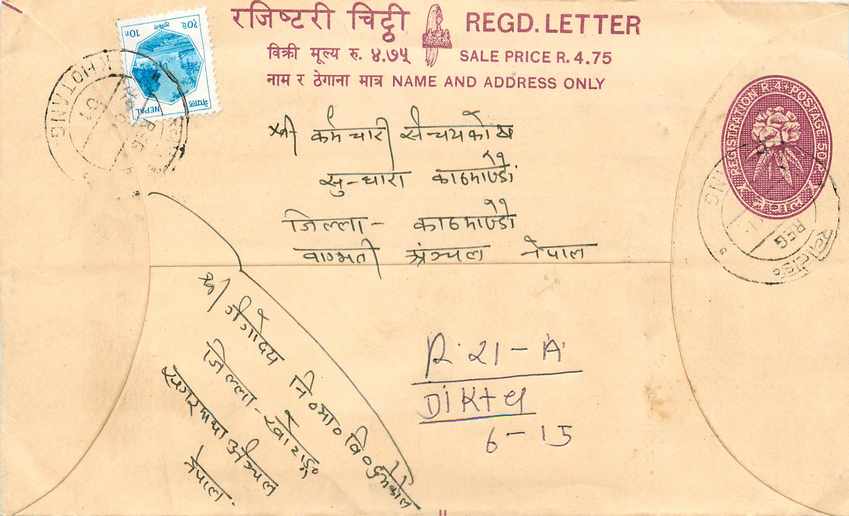 रजिष्टरी चिट्ठी REGD. LETTER
विक्री मूल्य रु. ४.७५ SALE PRICE R. 4.75
नाम र ठेगाना मात्र NAME AND ADDRESS ONLY
नेपाल NEPAL
10P.
KHOTANG
REG
REGISTRATION R. 4 POSTAGE 50P.
REG
श्री कर्मचारी संचयकोष
सु-धारा काठमाण्डौं
जिल्ला- काठमाण्डौं
वाग्मती अंञ्चल नेपाल
श्री
जिल्ला- खोटाङ्ग
सगरमाथा अंञ्चल
नेपाल.
R. 21 - A
DIKtel
6-15